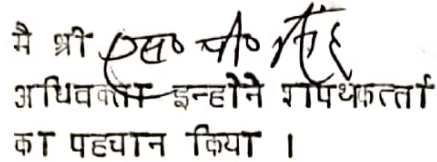 मै श्री एस० पी० सिंह
अधिवक्ता इन्होने शपथकर्त्ता
का पहचान किया ।